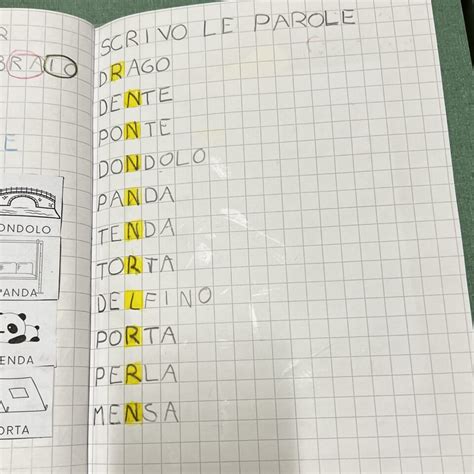 R
BRALO
E
ONDOLO
ANDA
ENDA
ORTA
SCRIVO LE PAROLE
DRAGO
DENTE
PONTE
DONDOLO
PANDA
TENDA
TORTA
DELFINO
PORTA
PERLA
MENSA